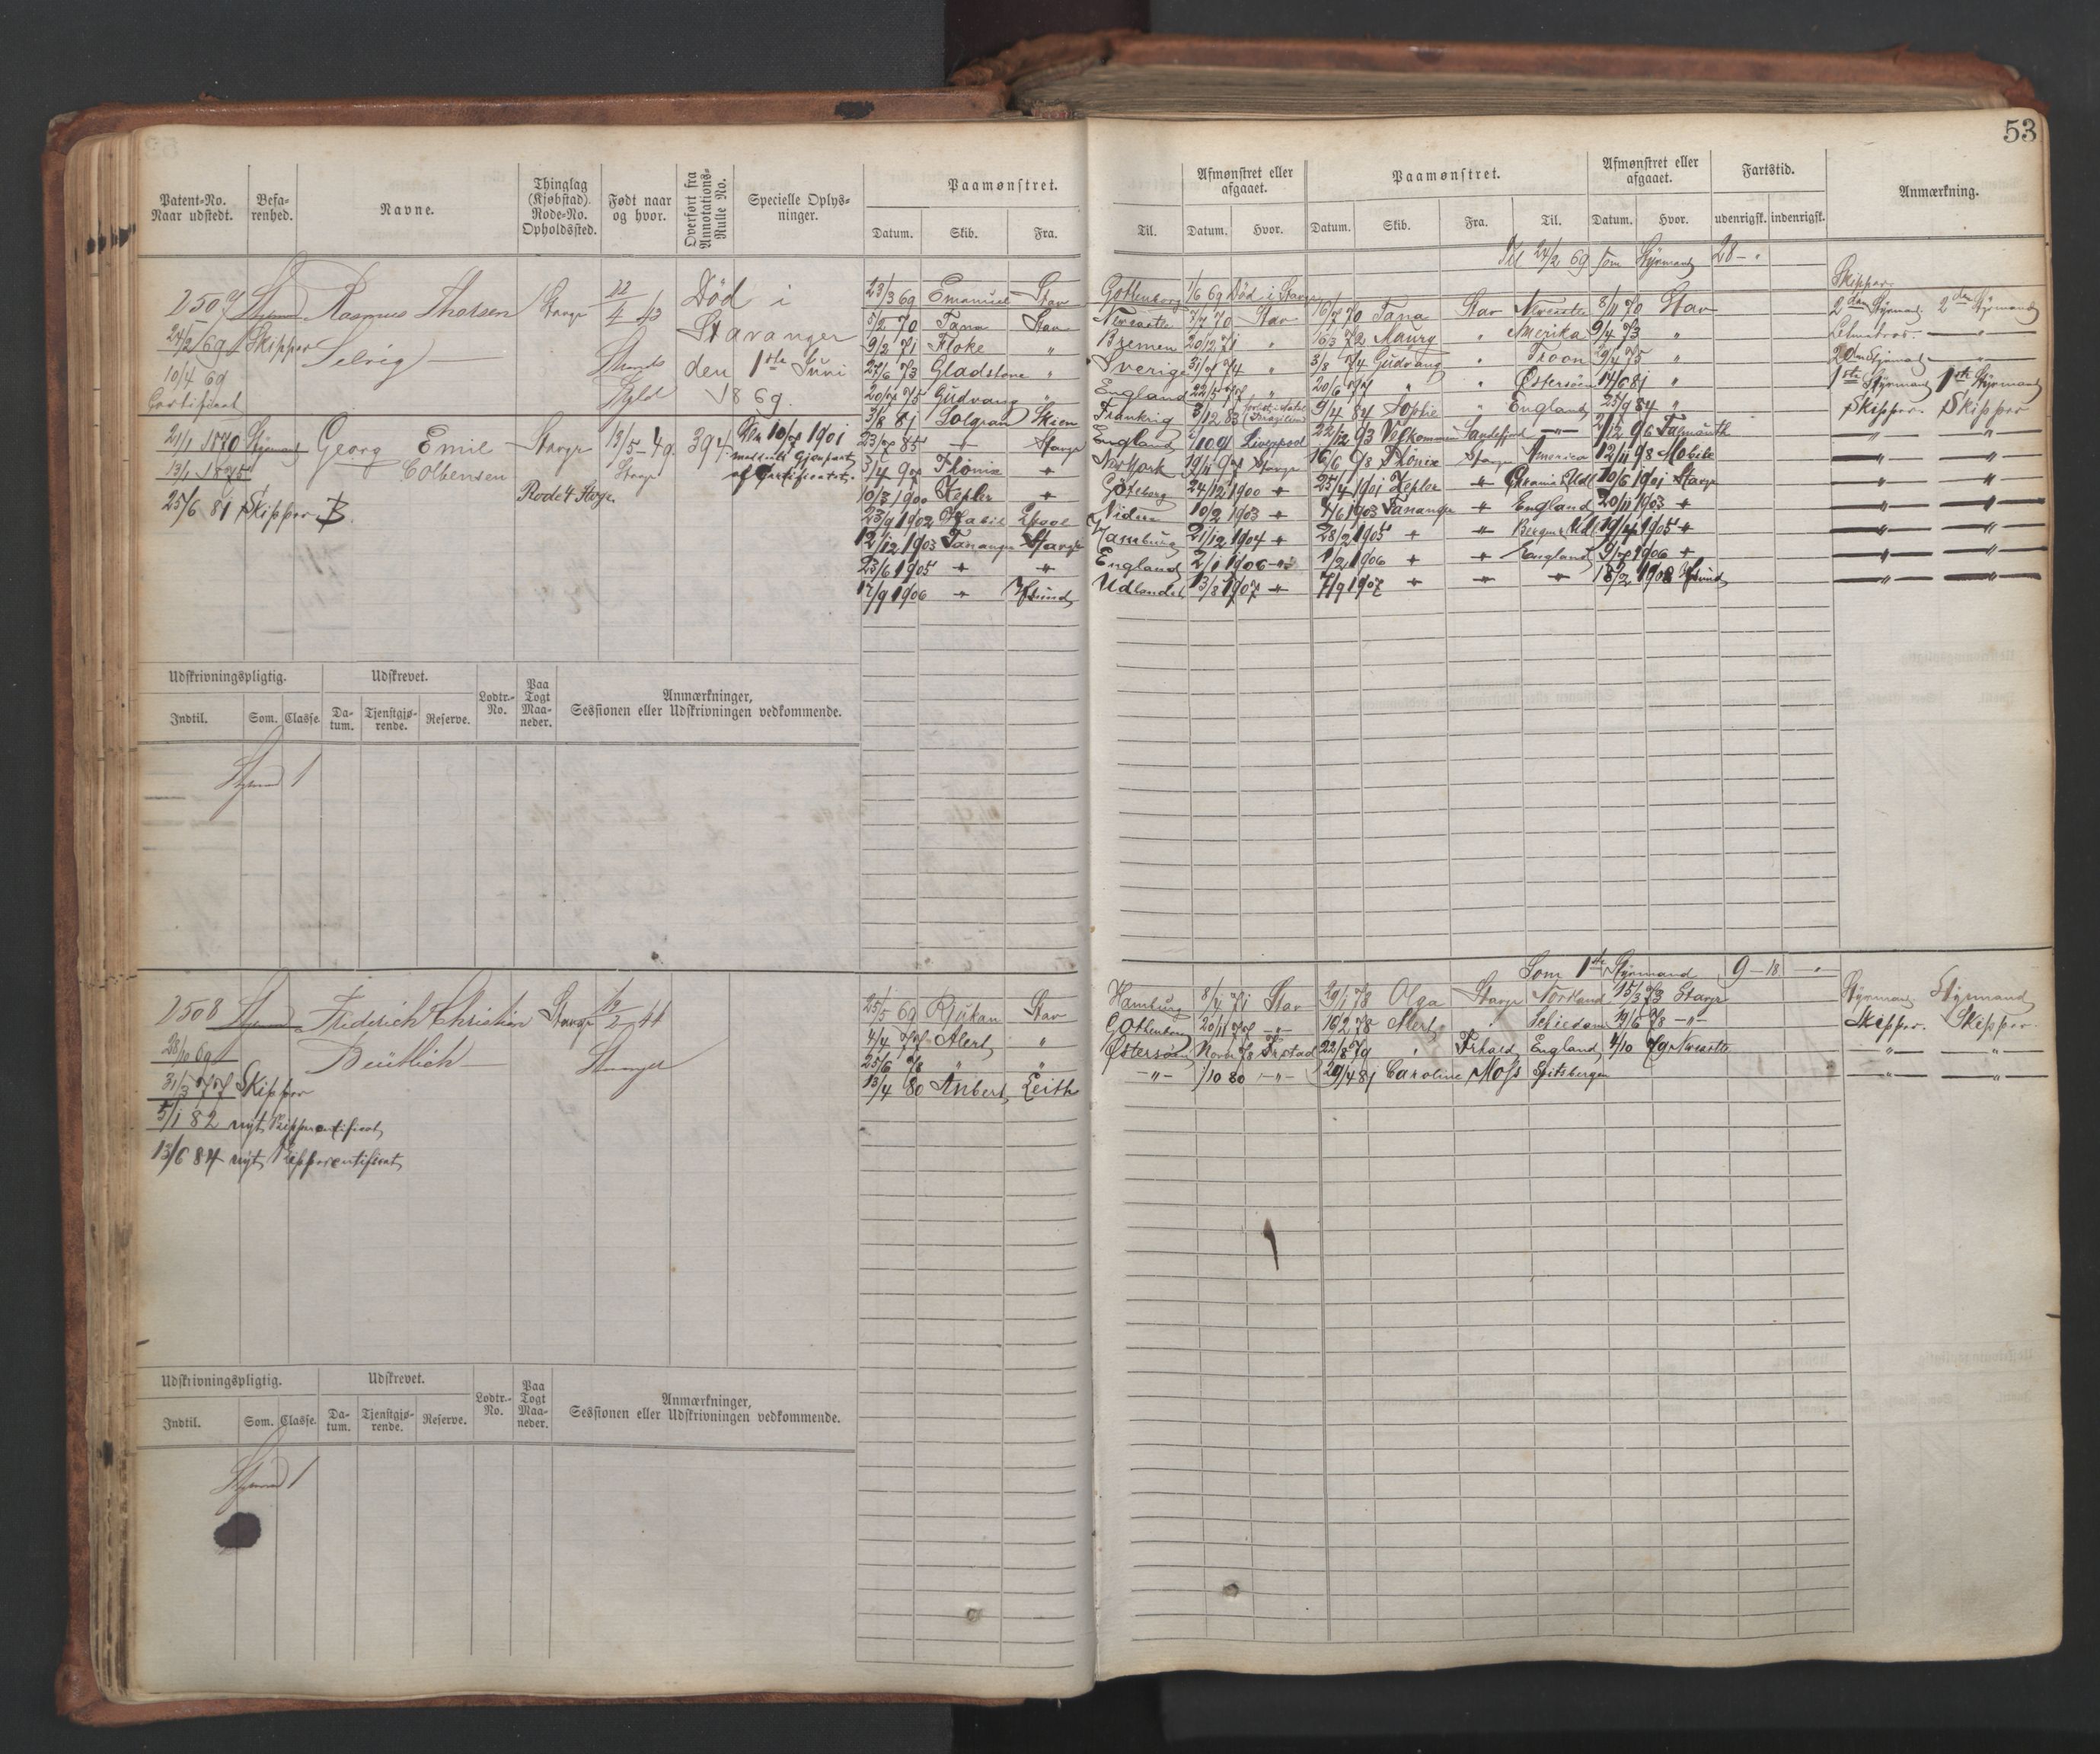 53
Patent-No. Naar udstedt.
Befarenhed.
Navne.
Thinglag (Kjøbstad). Rode-No. Opholdssted.
Født naar og hvor.
Overført fra Annotations-Rulle No.
Specielle Oplysninger.
Paamønstret.
Datum. Skib. Fra. Til.
Afmønstret eller afgaaet.
Datum. Hvor.
Paamønstret.
Datum. Skib. Fra. Til.
Afmønstret eller afgaaet.
Datum. Hvor.
Fartstid.
udenrigsk. indenrigsk.
Anmærkning.
Til 24/2 69 som Styrmand 28 -
2507 Rasmus Thorsen
Selvig
24/2 69 Skipper
10/4 69
Certificat
22/4 43
Død i
Stavanger
den 1ste Juni
1869.
21/1 1870 Georg Emil
Colbensen
13/1 1875
25/6 81 Skipper B.
Rode 4 Stvgr.
13/5 - 49.
394.
Den 10/7 1901
meddelt Gjenpart
af Certificatet.
23/3 69 Emanuel Stav Gottenborg 1/6 69 Død i Stavgr
Skipper
5/2 70 Tana Stav Newcastle 7/7 70 Stav 16/7 70 Tana Stav Newcastle 8/11 70 Stav
9/2 71 Floke " Bremen 20/12 71 " 16/3 72 Maurg " Amerika 9/4 73 "
27/6 73 Gladstone " Sverige 31/7 74 " 3/8 74 Gudvang " Troon 29/4 75 "
20/7 75 Gudvang " England 22/5 77 " 20/6 77 " " Østersøen 14/6 81 "
3/8 81 Solgran Skien Frankrig 3/12 83 9/4 84 Sophie " England 25/9 84 "
23/7 85 Stavgr England Liverpool 22/12 93 Velkommen Sandefjord 2/12 96 Falmouth
3/4 97 Fønix " New York 19/11 97 Stavgr 16/6 98 Fønix Stavgr America 12/11 98 Mobile
10/3 1900 Kepler " Göteborg 24/12 1900 " 25/4 1901 Kepler " 10/6 1901 Stavgr
23/9 1902 Lpool 10/2 1903 " 4/6 1903 Tananger " England 20/11 1903 "
12/12 1903 Tananger Stavgr Hamburg 21/12 1904 " 28/2 1905 " " 19/4 1905 "
23/6 1905 " " England 2/1 1906 " 1/2 1906 " " England 9/7 1906 "
17/9 1906 " Udlandet 13/8 1907 " 7/9 1907 " " " 18/2 1908
2den Styrmand 2den Styrmand
1ste Styrmand 1ste Styrmand
Skipper. Skipper
Udskrivningspligtig.
Indtil. Som. Classe.
Udskrevet.
Datum. Tjenstgjørende. Reserve.
Lodtr.-No.
Paa Togt Maaneder.
Anmærkninger,
Sessionen eller Udskrivningen vedkommende.
Styrmd 1
Som 1ste Styrmand 9 - 18 "
2508 Frederich Christian
Beutlich
12/2 44
Stavanger
28/10 69
31/3 77 Skipper
5/1 82 nyt Skippercertificat
13/6 84 nyt Skippercertificat
25/5 69 Rjukan Stav Hamburg 8/4 71 Stav 29/1 73 Olga Stavgr Nordland 15/3 73 Stavgr
4/4 77 Alert " Gottenborg 20/11 77 " 16/2 78 Alert " Schiedam 19/6 78 "
25/6 78 " " Østersøen Novr 78 Frstad 22/8 79 " Frhald England 4/10 79 Newcastle
13/4 80 Anbert Leith " /10 80 " 29/4 81 Caroline Moss Spitsbergen
Styrmand Styrmand
Skipper. Skipper.
Udskrivningspligtig.
Indtil. Som. Classe.
Udskrevet.
Datum. Tjenstgjørende. Reserve.
Lodtr.-No.
Paa Togt Maaneder.
Anmærkninger,
Sessionen eller Udskrivningen vedkommende.
Styrmd 1